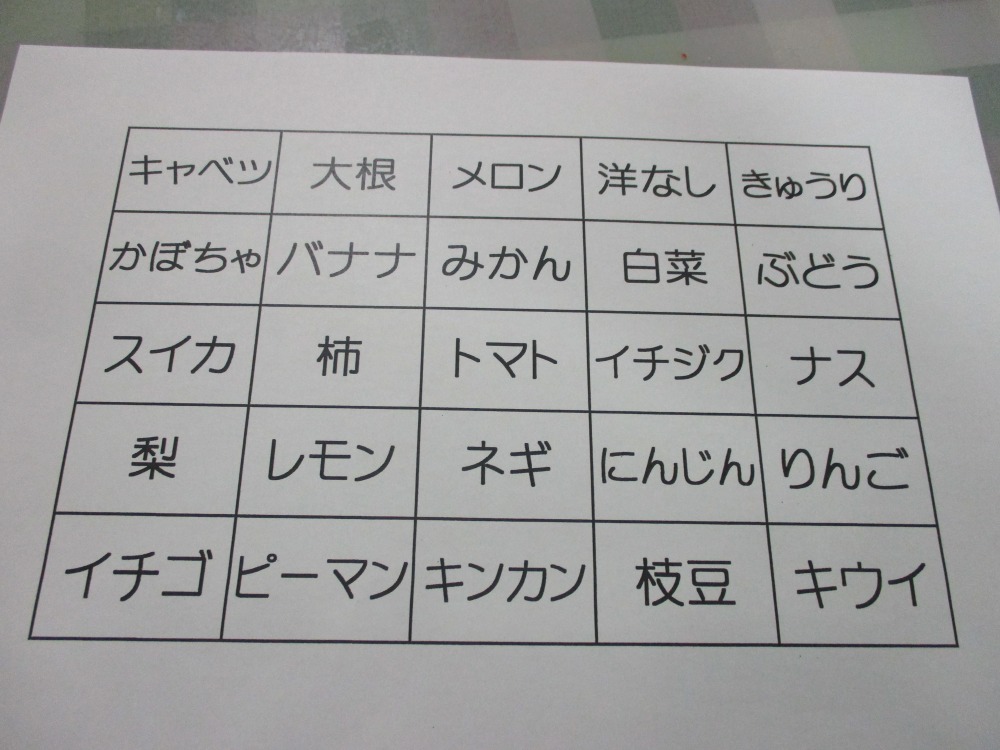 キャベツ 大根 メロン 洋なし きゅうり
かぼちゃ バナナ みかん 白菜 ぶどう
スイカ 柿 トマト イチジク ナス
梨 レモン ネギ にんじん りんご
イチゴ ピーマン キンカン 枝豆 キウイ